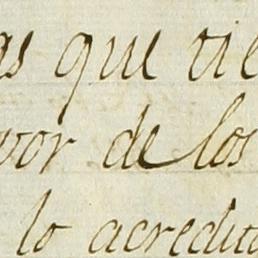 as que tie
vor de los
lo acredita